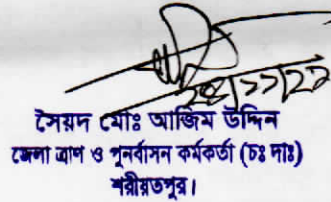 সৈয়দ মোঃ আজিম উদ্দিন
জেলা ত্রাণ ও পুনর্বাসন কর্মকর্তা (চঃ দাঃ)
শরীয়তপুর।